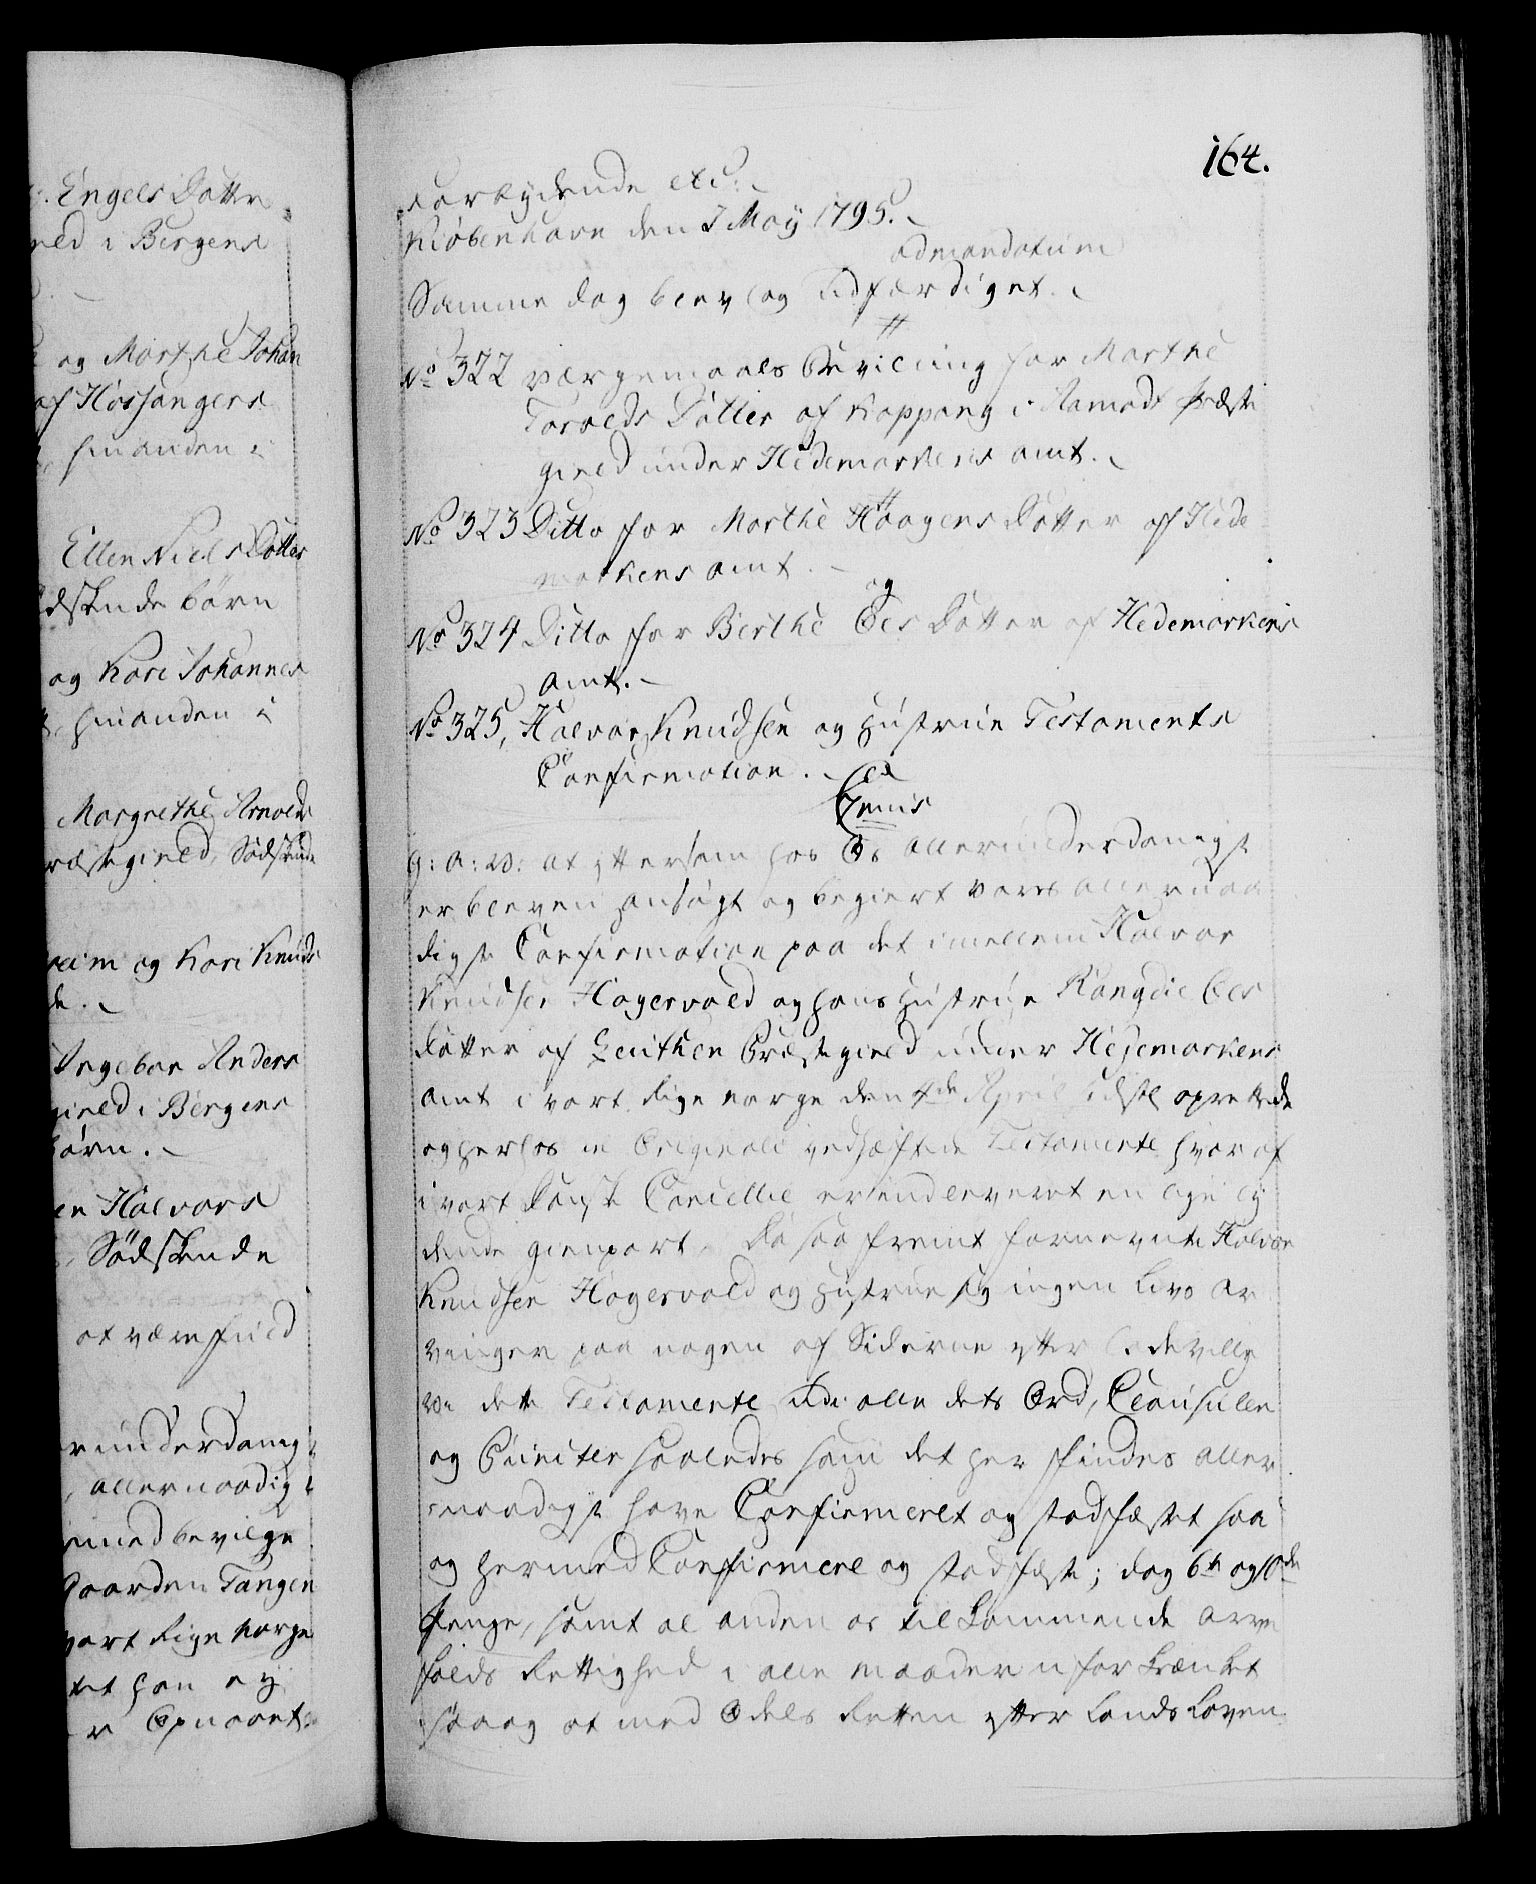 Engels Datter
i Bergens
og Marthe Johan
af Hosangers
hinanden i
Ellen Niels Datter
dskende börn
og Kari Johannes
hinanden i
Margrethe Arnolds
ræstegield, Södskende
eim og Kari Knuds
de.
Ingebor Anders
gield i Bergens
börn.
en Halvors
, Södskende
at være fuld
runderdanigst
, allernaadigst
bevilge
Gaarden Tangen
vort Rige Norge
tet han ey
Opnaaet
164.
Forbydende etc:
Kiöbenhavn den 1 May 1795.
ad mandatum
Samme dag blev og Udfærdiget.
No 322 Værgemaals Bevilling for Marthe
Tarolds Datter af Koppang i Aamodt Præste
gield under Hedemarkens amt.
No 323 Ditto for Marthe Haagens Datter af Hede
markens amt.
og
No 324 Ditto for Berthe Oles Datter af Hedemarkens
amt.
No 325, Halvor Knudsen og Hustrue Testaments
Confirmation.
Cd
G: A: V: at eftersom hos Os allerunderdanigst
er bleven ansögt og begiert vores allernaa
digste Confirmation paa det imellem Halvor
Knudsen Hagervold og hans Hustrue Rangdie Oles
datter af Leuthen Præstegield under Hedemarkens
amt i vort Rige Norge den 4de April sidstl oprettede
og herhos in Originali vedhæftede Testamente hvoraf
i vort Danske Cancellie er indleveret en lige ly
dende gienpart. Da saafremt fornevnte Halvor
Knudsen Hagervold og Hustrue sig ingen Livs Ar
vinger paa nogen af Siderne efterlade ville
Vi dette Testamente udi alle dets Ord, Clausuller
og Puncter saaledes som det her findes aller
naadigst have Confirmeret og stadfæstet saa
og hermed Confirmere og stadfæste; dog 6te og 10de
Penge, samt al anden os tilkommende arve
falds Rettighed i alle maader uforkrænket
saa og at med Odels Retten efter Lands Loven